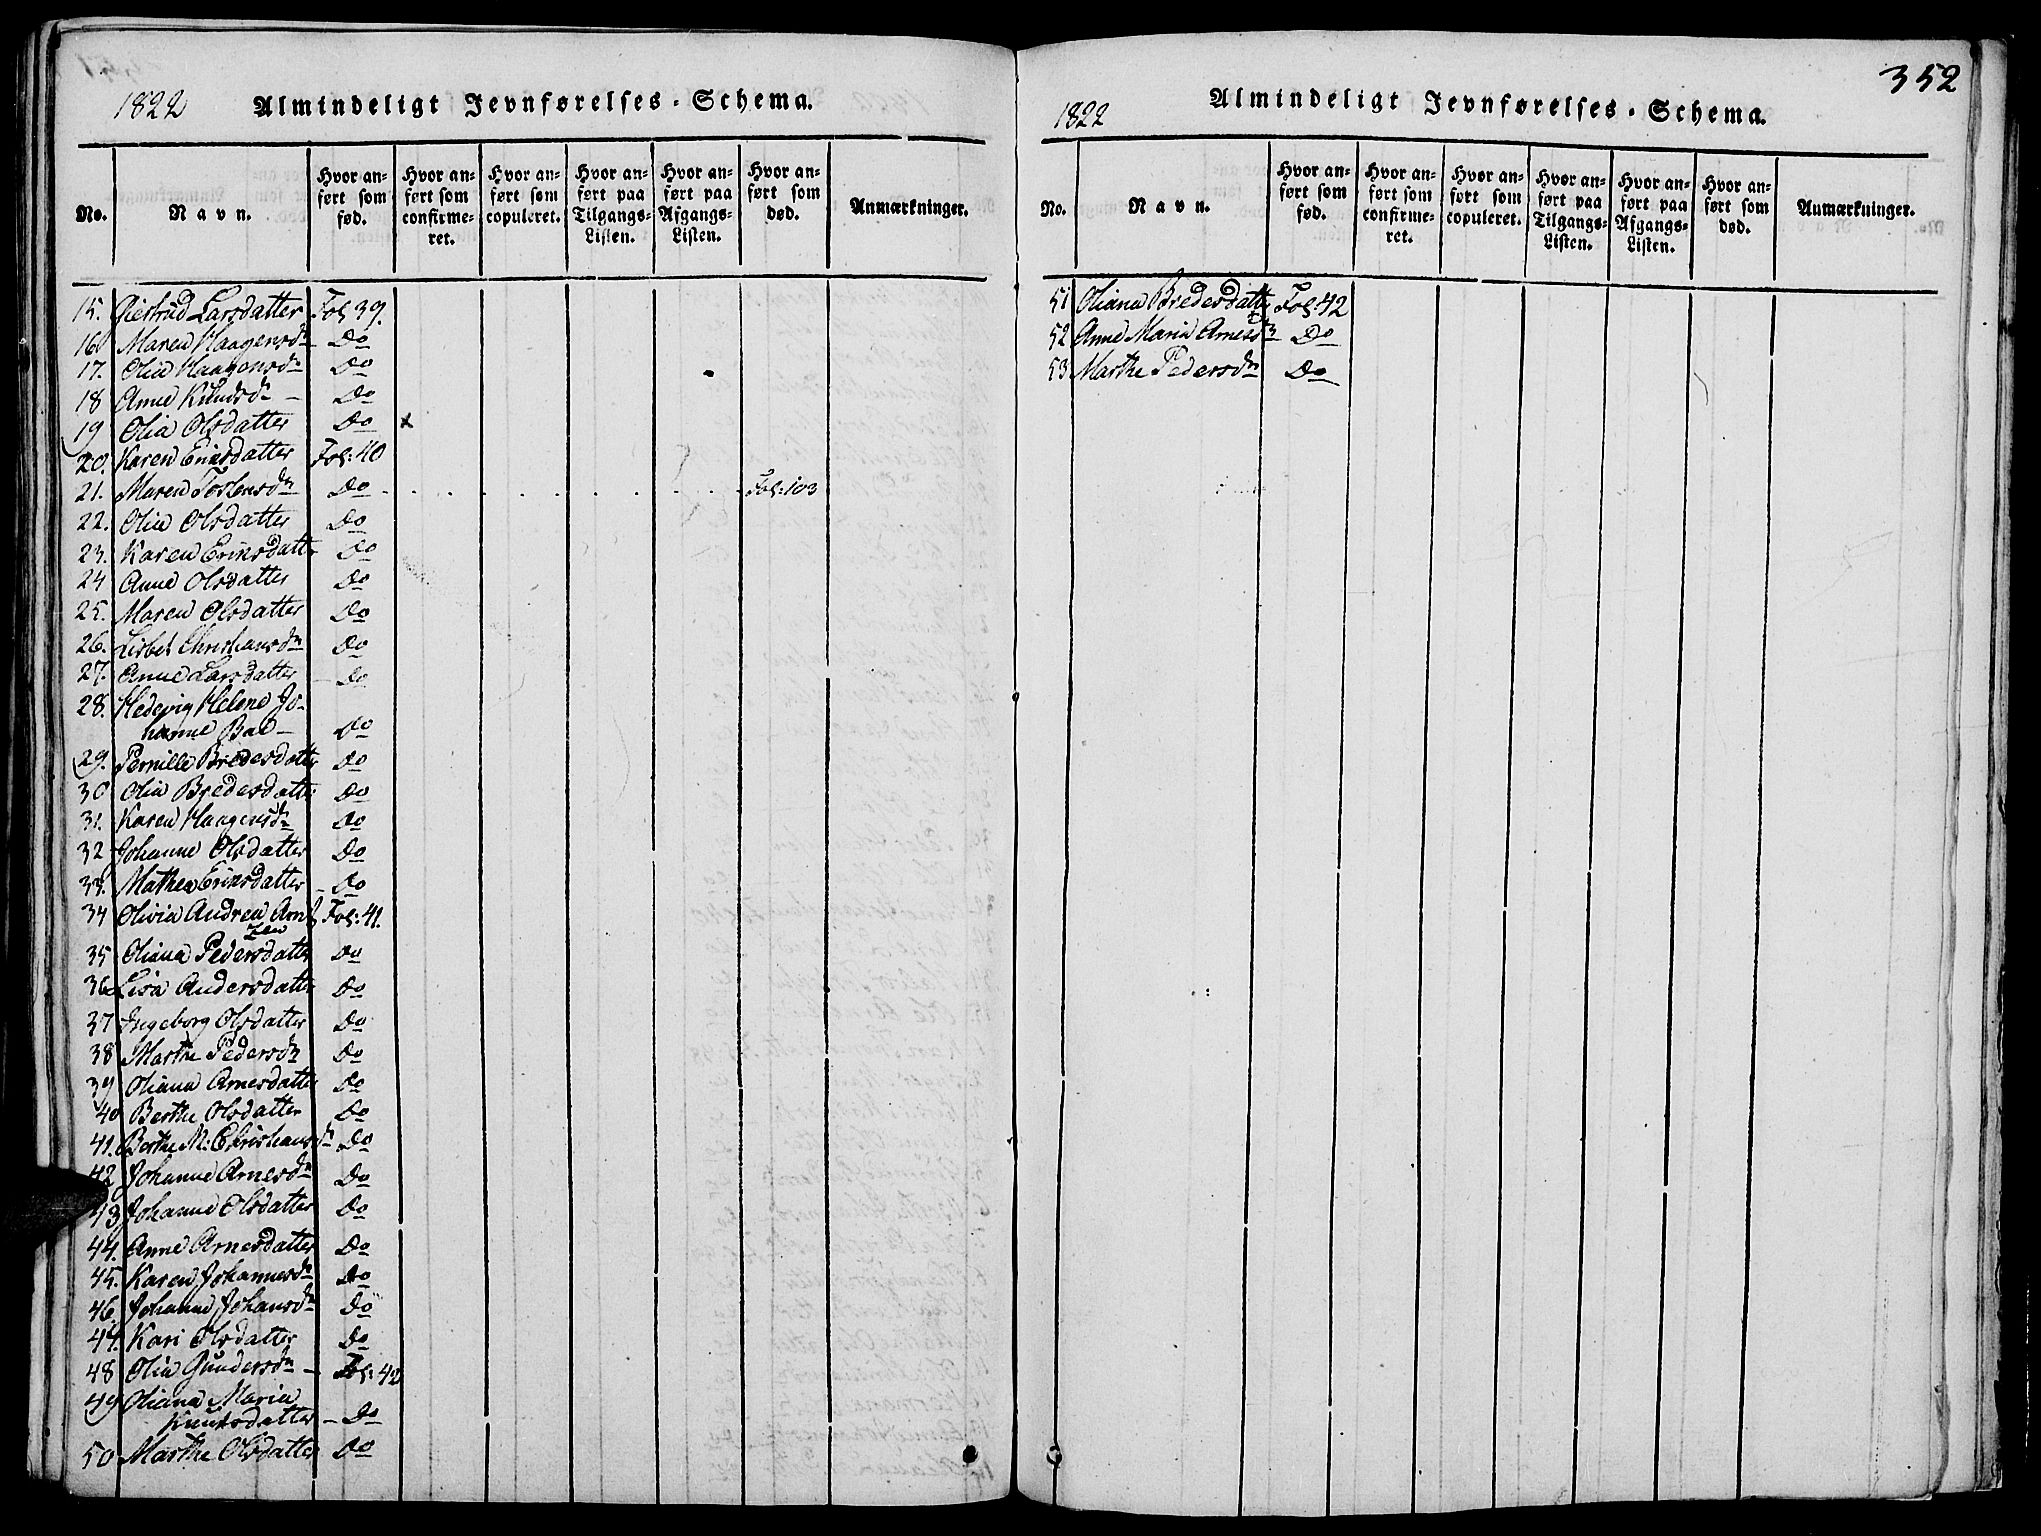 1822 Almindeligt Jevnførelses-Schema.
No. Navn. Hvor anført som fød. Hvor anført som confirmeret. Hvor anført som copuleret. Hvor anført paa Tilgangs-Listen. Hvor anført paa Afgangs-Listen. Hvor anført som død. Anmærkninger.
15. Giertrud Larsdatter Fol 39.
16. Maren Haagensdr Do
17. Olia Haagensdr Do
18 Anne Knudsdr Do
19 Olia Olsdatter Do
20. Karen Eriksdatter Fol: 40
21. Maren Tostensdr Do Fol: 103
22. Olia Olsdatter Do
23. Karen Eriksdatter Do
24 Anne Olsdatter Do
25. Maren Olsdatter Do
26. Lisbet Christiansdr Do
27. Anne Larsdatter Do
28. Hedevig Helene Jo-
hanne Bae Do
29. Pernille Bredesdatter Do
30 Olia Bredesdatter Do
31. Karen Haagensdr Do
32 Johanne Olsdatter Do
33. Mathea Eriksdatter Do
34 Olivia Andrea Arnt Fol: 41.
zen
35 Oliana Pedersdatter Do
36 Lisa Andersdatter Do
37 Ingeborg Olsdatter Do
38 Marthe Pedersdr Do
39 Oliana Arnesdatter Do
40 Berthe Olsdatter Do
41. Berthe M: Christiansdr Do
42 Johanne Arnesdr Do
43 Johanne Olsdatter Do
44. Anne Arnesdatter Do
45. Karen Johannesdr Do
46. Johanne Johansdr Do
47. Kari Olsdatter Do
48 Olia Gundersdr Fol: 42
49 Oliana Maria
Knudsdatter Do
50 Marthe Olsdatter Do
352
1822 Almindeligt Jevnførelses-Schema.
No. Navn. Hvor anført som fød. Hvor anført som confirmeret. Hvor anført som copuleret. Hvor anført paa Tilgangs-Listen. Hvor anført paa Afgangs-Listen. Hvor anført som død. Anmærkninger.
51 Oliana Bredesdatter Fol: 42
52 Anne Maria Arnesdr Do
53. Marthe Pedersdr Do